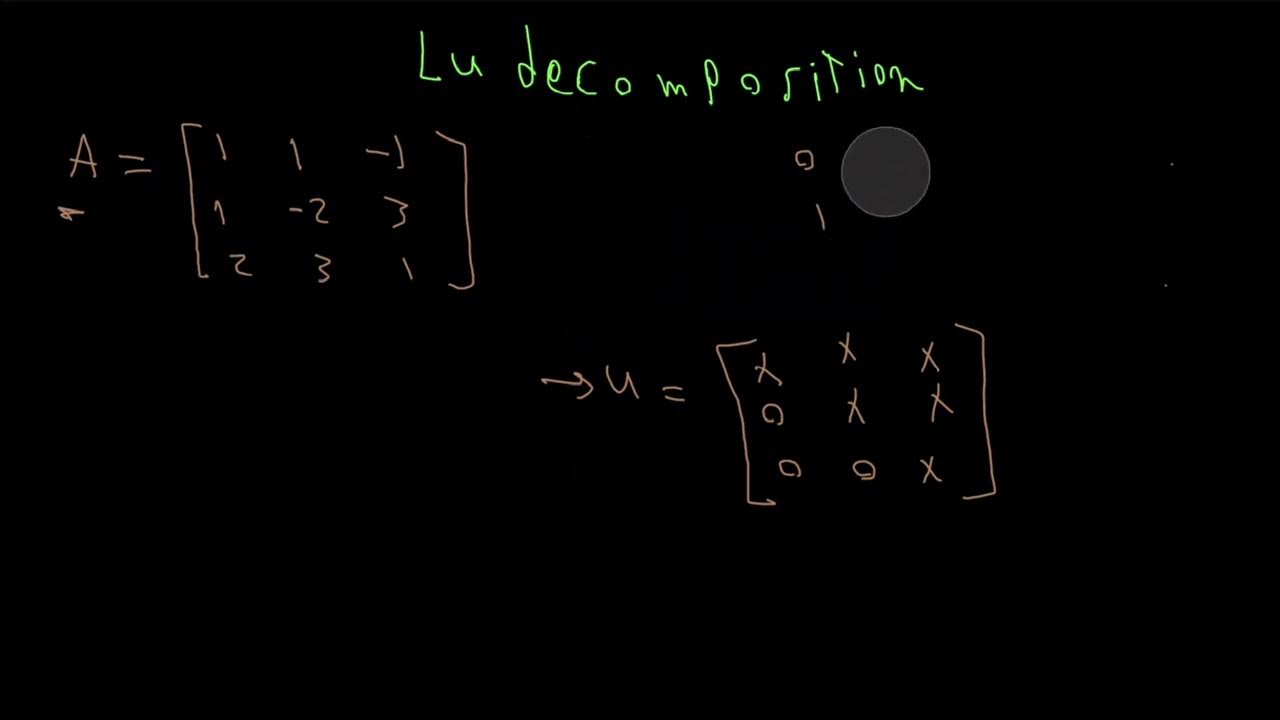 Lu decomposition
A = [ 1 1 -1
1 -2 3
2 3 1 ]
0
1
→ U = [ x x x
0 x x
0 0 x ]